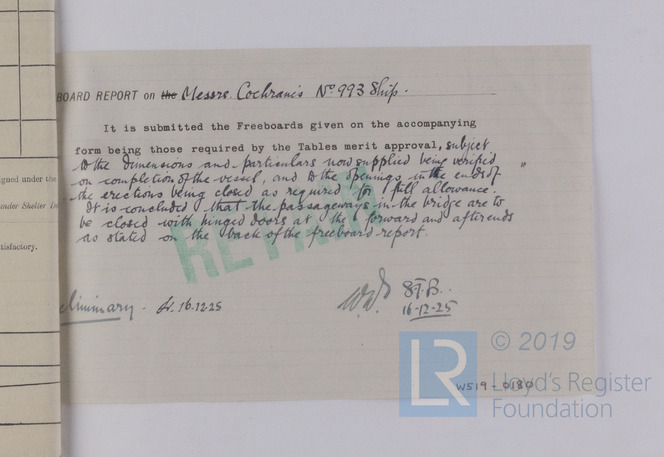 BOARD REPORT on the Messrs. Cochrane's No 993 Ship.
It is submitted the Freeboards given on the accompanying
form being those required by the Tables merit approval, subject
to the dimensions and particulars now supplied being verified
on completion of the vessel, and to the openings in the ends of
the erections being closed as required for full allowance.
It is concluded that the passageways in the bridge are to
be closed with hinged doors at the forward and after ends
as stated on the back of the freeboard report.
RETAIN
eliminary. 16.12.25
16-12-25
igned under the
under Shelter De
tisfactory.
W519-0180
© 2019
LR
Lloyd's Register
Foundation